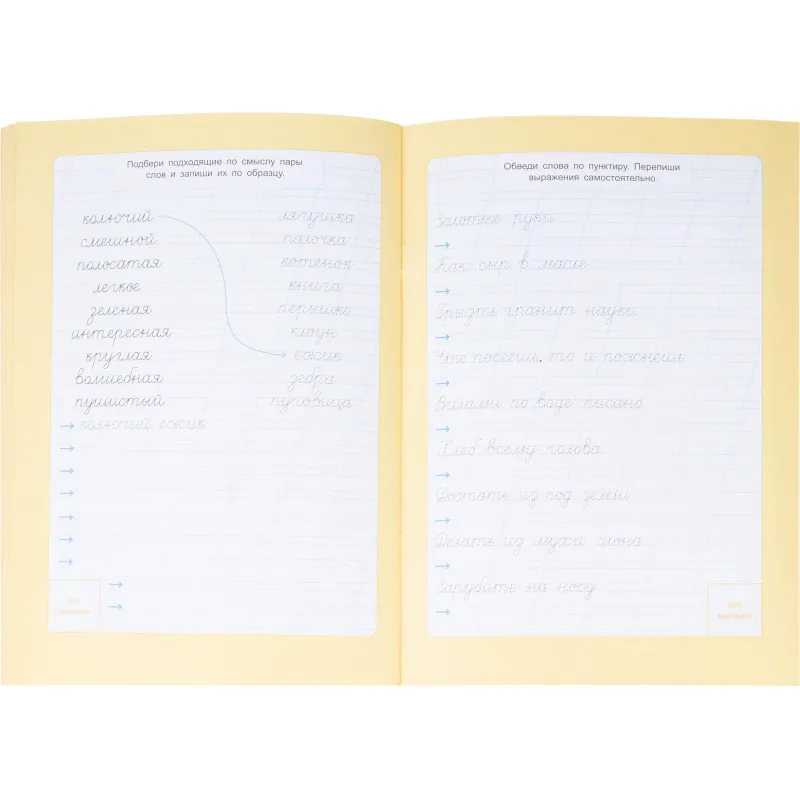 Подбери подходящие по смыслу пары
слов и запиши их по образцу.
колючий лягушка
смешной палочка
полосатая котенок
легкое книга
зеленая перышко
интересная клоун
круглая ежик
волшебная зебра
пушистый пуговица
→ колючий ежик
→
→
→
→
→
→
→
→
Для
наклейки
Обведи слова по пунктиру. Перепиши
выражения самостоятельно.
Золотые руки
→
Как сыр в масле
→
Грызть гранит науки
→
Что посеешь, то и пожнешь
→
Вилами по воде писано
→
Хлеб всему голова
→
Достать из под земли
→
Делать из мухи слона
→
Зарубить на носу
→
Для
наклейки